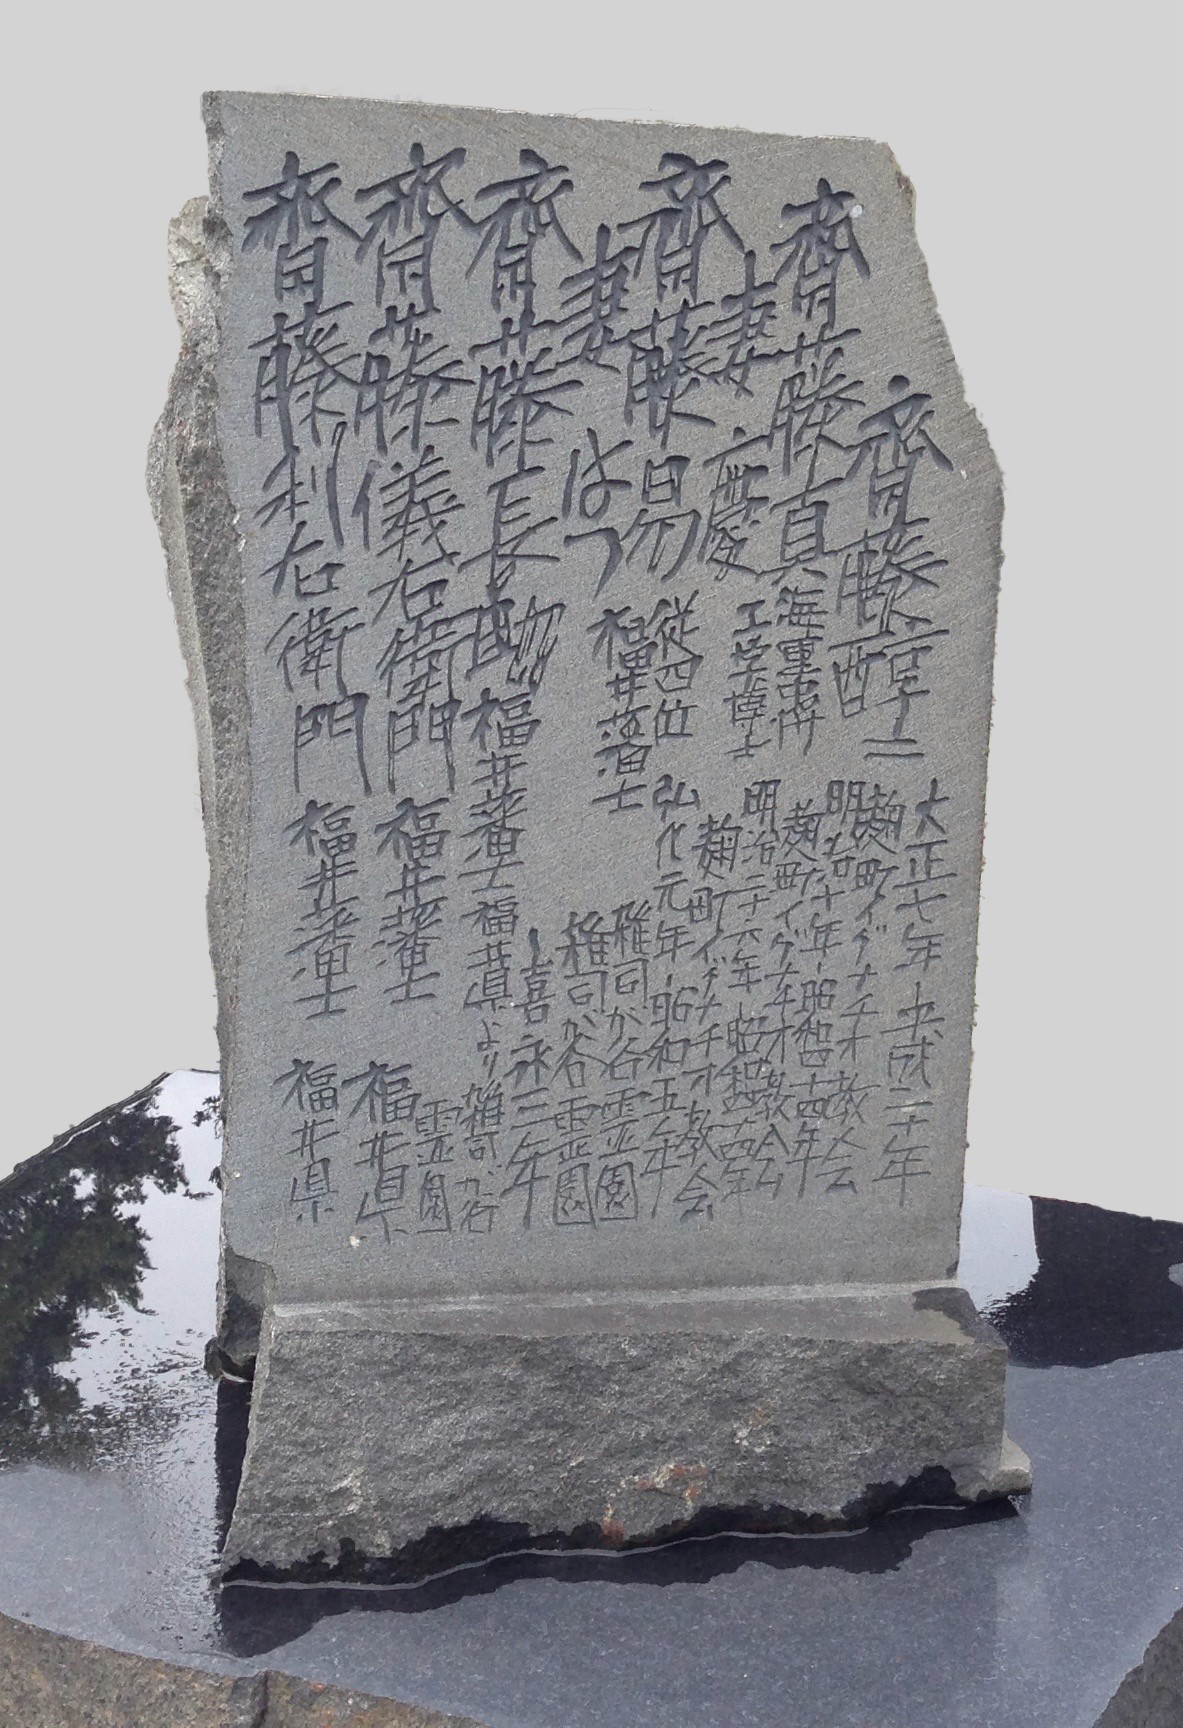 齊藤享二 大正七年-平成二十年
麹町イグナチオ教会
齊藤真 海軍中将 明治二十年-昭和四十四年
工学博士 麹町イグナチオ教会
妻 慶 明治二十六年-昭和四十五年
麹町イグナチオ教会
齊藤易 従四位 弘化元年-昭和五年
福井藩士 雑司が谷霊園
妻 はつ 雑司が谷霊園
-嘉永三年
齊藤長 福井藩士 福井県より雑司が谷
霊園
齊藤儀右衛門 福井藩士 福井県
齊藤利右衛門 福井藩士 福井県